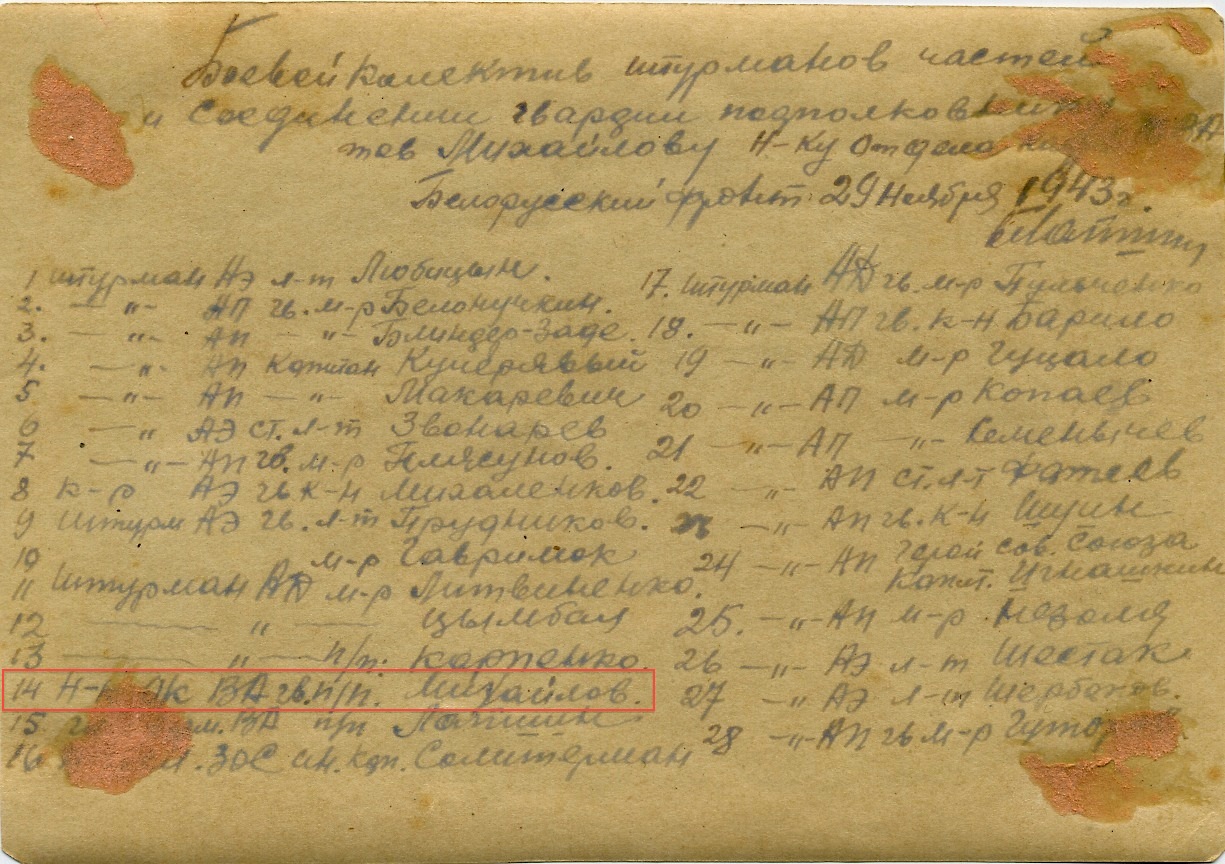 Боевой колектив штурманов частей
и соединении гвардии подполковнику
тов Михайлову Н-ку Отдела ВА
Белорусский фронт. 29 Ноября 1943 г.
Лапшин
1 штурман АЭ л-т Любицын.
2. — " — АП гв. м-р Белонучкин.
3. — " — АП — " — Блиндер-Заде.
4. — " — АП Капитан Кучерявый
5 — " — АП — " — Макаревич
6 — " АЭ ст. л-т Звонарев
7 — " — АП гв. м-р Плясунов.
8 к-р АЭ гв к-н Михаленков.
9 Штурм АЭ гв. л-т Прудников.
10 м-р Гаврилюк
11 Штурман АД м-р Литвиненко.
12 — " — Цымбал
13 — " — п/п. Карпенко.
14 ВА гв. п/п. Михайлов.
15 ВА п/п Лапшин
16 ЗОС ин. кап. Солитерман
17. штурман АД гв. м-р Пульченко
18. — " — АП гв. к-н Барило
19 — " — АД м-р Гуцало
20 — " — АП м-р Копаев
21 — " — АП — " — Кеменычев
22 — " — АП ст. л-т Фатеев
23 — " — АП гв. к-н Шуин
24 — " — АП Герой Сов. Союза
Капит. Игнашкин
25. — " — АП м-р
26 — " — АЭ л-т Шестак
27 — " — АЭ л-т Щербаков.
28 — " — АП гв м-р